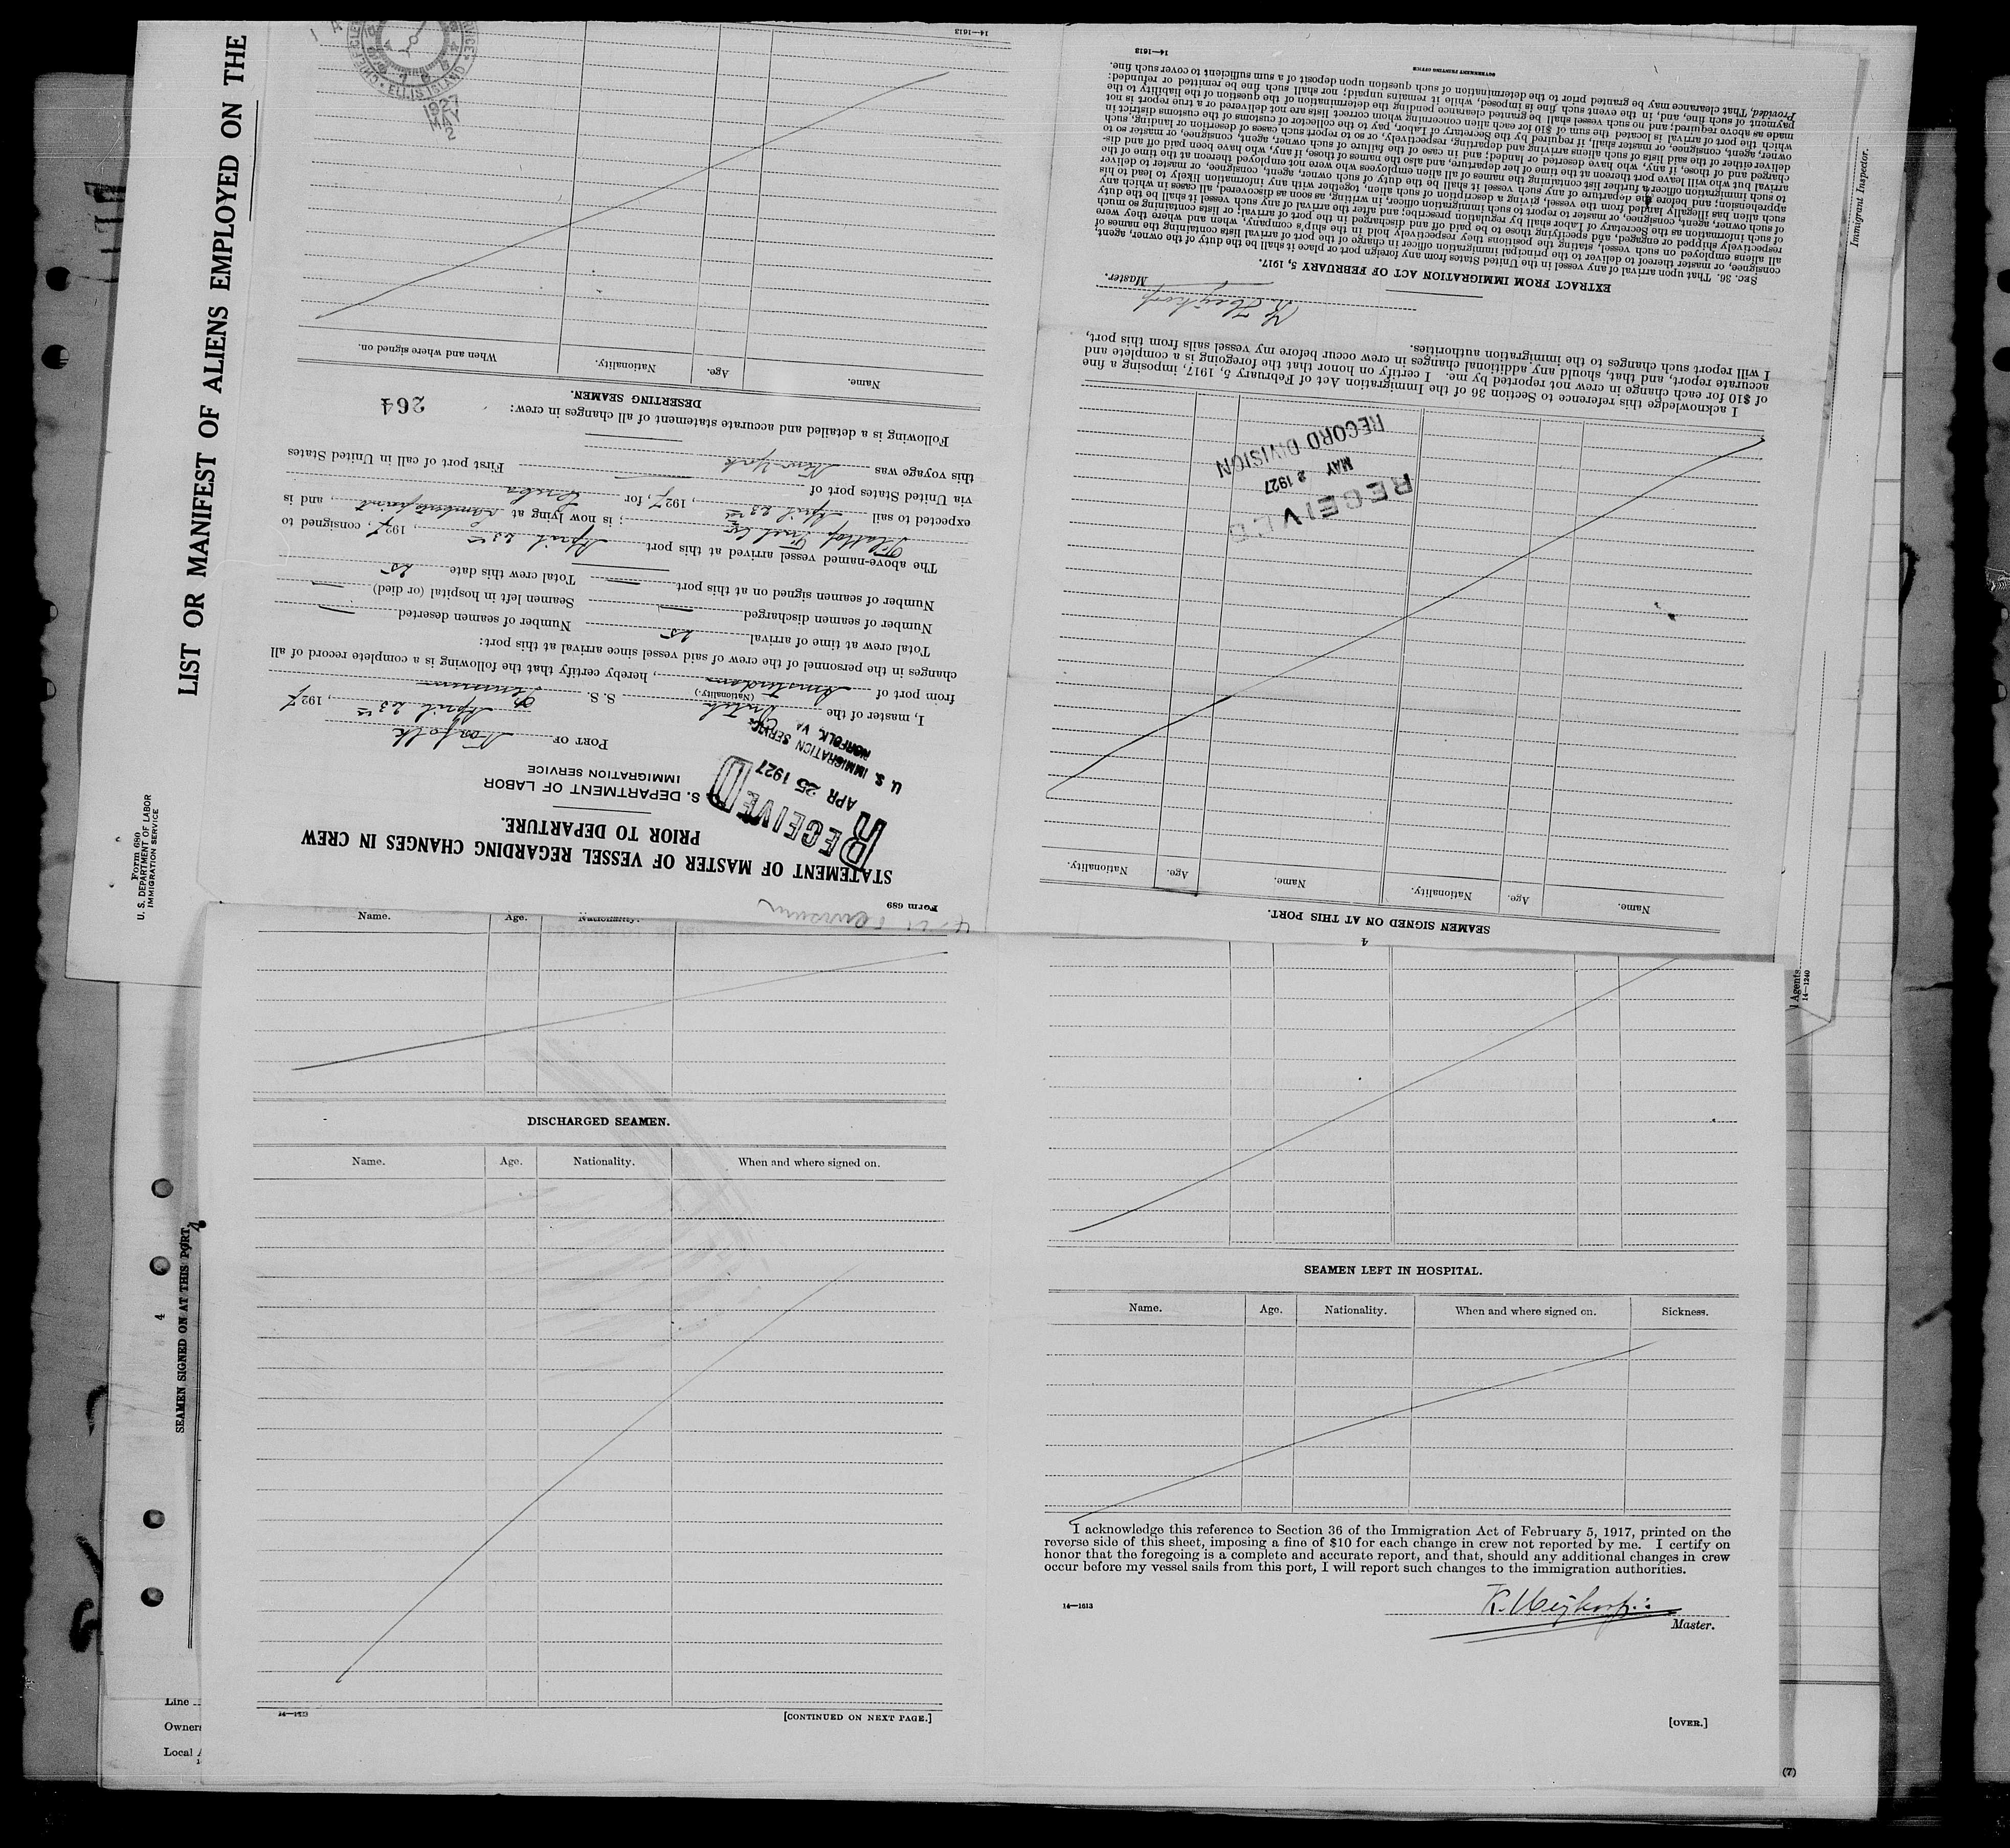 LIST OR MANIFEST OF ALIENS EMPLOYED ON THE
Form 680
U. S. DEPARTMENT OF LABOR
IMMIGRATION SERVICE
Form 689
STATEMENT OF MASTER OF VESSEL REGARDING CHANGES IN CREW
PRIOR TO DEPARTURE.
S. DEPARTMENT OF LABOR
IMMIGRATION SERVICE
RECEIVED
APR 25 1927
U. S. IMMIGRATION SERVICE
NORFOLK, VA
PORT OF Norfolk
April 23rd, 1927
I, master of the Dutch S. S.
(Nationality.)
from port of Amsterdam, hereby certify that the following is a complete record of all
changes in the personnel of the crew of said vessel since arrival at this port:
Total crew at time of arrival 25 Number of seamen deserted —
Number of seamen discharged — Seamen left in hospital (or died) —
Number of seamen signed on at this port — Total crew this date 25
The above-named vessel arrived at this port April 23rd, 1927, consigned to
; is now lying at Lamberts point, and is
expected to sail April 23rd, 1927, for
via United States port of —
this voyage was New York First port of call in United States
Following is a detailed and accurate statement of all changes in crew:
264
DESERTING SEAMEN.
Name. Age. Nationality. When and where signed on.
14—1613
ELLIS ISLAND
1927
MAY
2
4
SEAMEN SIGNED ON AT THIS PORT.
Name. Age. Nationality. Name. Age. Nationality.
RECEIVED
MAY 2 1927
RECORD DIVISION
I acknowledge this reference to Section 36 of the Immigration Act of February 5, 1917, imposing a fine
of $10 for each change in crew not reported by me. I certify on honor that the foregoing is a complete and
accurate report, and that, should any additional changes in crew occur before my vessel sails from this port,
I will report such changes to the immigration authorities.
Master.
EXTRACT FROM IMMIGRATION ACT OF FEBRUARY 5, 1917.
SEC. 36. That upon arrival of any vessel in the United States from any foreign port or place it shall be the duty of the owner, agent,
consignee, or master thereof to deliver to the principal immigration officer in charge of the port of arrival lists containing the names of
all aliens employed on such vessel, stating the positions they respectively hold in the ship's company, when and where they were
respectively shipped or engaged, and specifying those to be paid off and discharged in the port of arrival; or lists containing so much
of such information as the Secretary of Labor shall by regulation prescribe; and after the arrival of any such vessel it shall be the duty
of such owner, agent, consignee, or master to report to such immigration officer, in writing, as soon as discovered, all cases in which any
such alien has illegally landed from the vessel, giving a description of such alien, together with any information likely to lead to his
apprehension; and before the departure of any such vessel it shall be the duty of such owner, agent, consignee, or master to deliver
to such immigration officer a further list containing the names of all alien employees who were not employed thereon at the time of the
arrival but who will leave port thereon at the time of her departure, and also the names of those, if any, who have been paid off and dis-
charged and of those, if any, who have deserted or landed; and in case of the failure of such owner, agent, consignee, or master so to
deliver either of the said lists of such aliens arriving and departing, respectively, or so to report such cases of desertion or landing, such
owner, agent, consignee, or master shall, if required by the Secretary of Labor, pay to the collector of customs of the customs district in
which the port of arrival is located the sum of $10 for each alien concerning whom correct lists are not delivered or a true report is not
made as above required; and no such vessel shall be granted clearance pending the determination of the question of the liability to the
payment of such fine, and, in the event such fine is imposed, while it remains unpaid; nor shall such fine be remitted or refunded:
Provided, That clearance may be granted prior to the determination of such question upon deposit of a sum sufficient to cover such fine.
GOVERNMENT PRINTING OFFICE
14—1613
Immigrant Inspector.
Agents
14—1240
Name. Age. Nationality.
DISCHARGED SEAMEN.
Name. Age. Nationality. When and where signed on.
14—1613
[CONTINUED ON NEXT PAGE.]
SEAMEN LEFT IN HOSPITAL.
Name. Age. Nationality. When and where signed on. Sickness.
I acknowledge this reference to Section 36 of the Immigration Act of February 5, 1917, printed on the
reverse side of this sheet, imposing a fine of $10 for each change in crew not reported by me. I certify on
honor that the foregoing is a complete and accurate report, and that, should any additional changes in crew
occur before my vessel sails from this port, I will report such changes to the immigration authorities.
14—1613
Master.
[OVER.]
(7)
4
SEAMEN SIGNED ON AT THIS PORT.
Line
Owners
Local